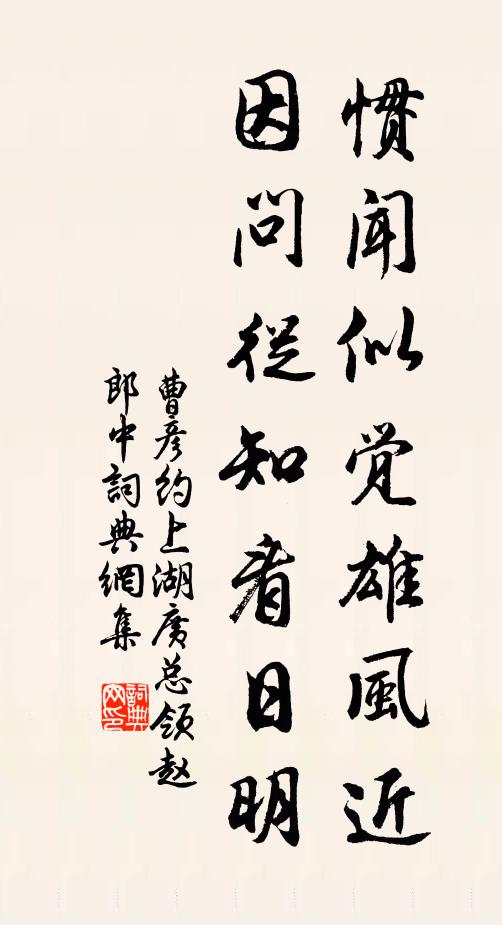 惯闻似觉雄風近
因問從知看日明
曹彦约上湖廣总领赵
郎中詞典網集
詞典网印